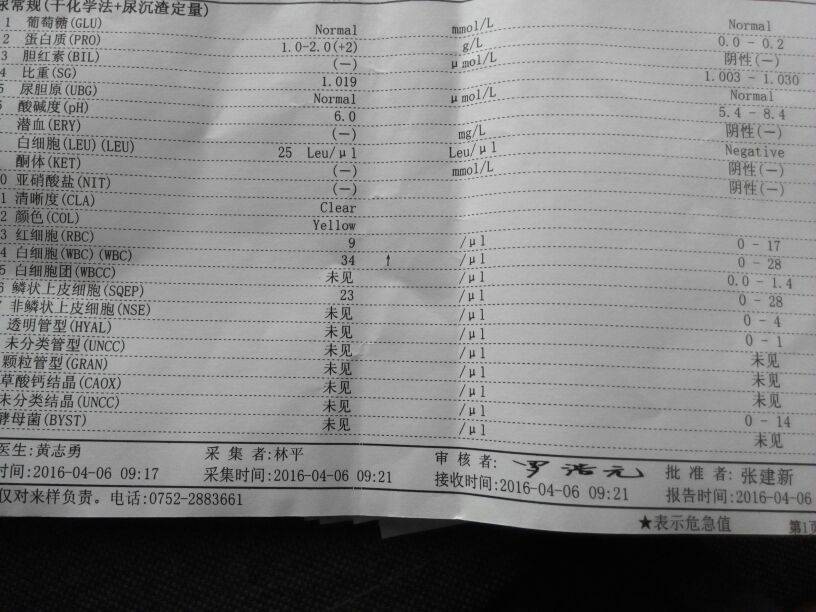 尿常规(干化学法+尿沉渣定量)
1 葡萄糖(GLU) Normal mmol/L Normal
2 蛋白质(PRO) 1.0-2.0(+2) g/L 0.0 - 0.2
3 胆红素(BIL) (—) μmol/L 阴性(—)
4 比重(SG) 1.019 1.003 - 1.030
5 尿胆原(UBG) Normal μmol/L Normal
6 酸碱度(pH) 6.0 5.4 - 8.4
潜血(ERY) (—) mg/L 阴性(—)
白细胞(LEU)(LEU) 25 Leu/μl Leu/μl Negative
酮体(KET) (—) mmol/L 阴性(—)
0 亚硝酸盐(NIT) (—) 阴性(—)
1 清晰度(CLA) Clear
2 颜色(COL) Yellow
3 红细胞(RBC) 9 /μl 0 - 17
4 白细胞(WBC)(WBC) 34 ↑ /μl 0 - 28
5 白细胞团(WBCC) 未见 /μl 0.0 - 1.4
6 鳞状上皮细胞(SQEP) 23 /μl 0 - 28
7 非鳞状上皮细胞(NSE) 未见 /μl 0 - 4
透明管型(HYAL) 未见 /μl 0 - 1
未分类管型(UNCC) 未见 /μl 未见
颗粒管型(GRAN) 未见 /μl 未见
草酸钙结晶(CAOX) 未见 /μl 未见
未分类结晶(UNCC) 未见 /μl 0 - 14
酵母菌(BYST) 未见 /μl 未见
医生:黄志勇 采 集 者:林平 审 核 者: 批 准 者:张建新
时间:2016-04-06 09:17 采集时间:2016-04-06 09:21 接收时间:2016-04-06 09:21 报告时间:2016-04-06
仅对来样负责。电话:0752-2883661
★表示危急值 第1页